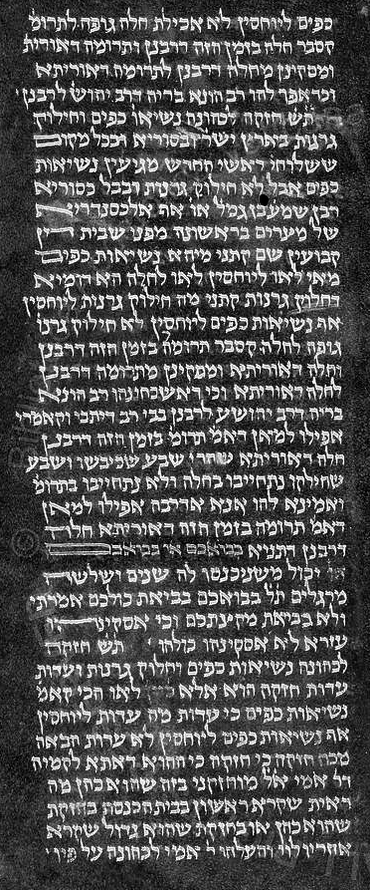 כפים ליוחסין לא אכילת חלה גופה לתרומ'
קסבר חלה בזמן הזה דרבנן ותרומה דאורית'
ומסקינן מחלה דרבנן לתרומה דאוריתא
וכדאמ' להו רב הונא בריה דרב יהושע לרבנן
תש חזקה לכהונה נשיאות כפים וחילוק
גרנות בארץ ישר' ובסוריא ובכל מקום
ששלוחי ראשי החדש מגיעין נשיאות
כפים אבל לא חילוק גרנות ובבל כסוריא
רבן שמעון בן גמל' או' אף אלכסנדריא
של מצרים בראשונה מפני שבית דין
קבועין שם קתני מיהא נשיאות כפים
מאי לאו ליוחסין לאו לחלה הא דומיא
דחלוק גרנות קתני מה חילוק גרנות ליוחסין
אף נשיאות כפים ליוחסין לא חילוק גרנו'
גופה לחלה קסבר תרומה בזמן הזה דרבנן
וחלה דאוריתא ומסקינן מתרומה דרבנן
לחלה דאוריתא וכי דאשכחונהו רב הונא
בריה דרב יהושע לרבנן בבי רב דיתבי וקאמרי
אפילו למאן דאמ' תרומ' בזמן הזה דרבנן
חלה דאוריתא שהרי שבע שכיבשו ושבע
שחילקו נתחייבו בחלה ולא נתחייבו בתרומ'
ואמינא להו אנא אדרבה אפילו למאן
דאמ' תרומה בזמן הזה דאוריתא חלה
דרבנן דתניא בבואכם או בבואכם
יכול משנכנסו לה שנים ושלשה
מרגלים תל בבואכם בביאת כולכם אמרתי
ולא בביאת מקצתכם וכי אסקינהו
עזרא לא אסקינהו כולהו תש חזקה
לכהונה נשיאות כפים וחלוק גרנות ועדות
עדות חזקה הוא אלא לאו הכי קאמ'
נשיאות כפים כי עדות מה עדות ליוחסין
אף נשיאות כפים ליוחסין לא עדות הבאה
מכח חזקה כי חזקה כי ההוא דאתא לקמיה
דר אמי אל מוחזקני בזה שהוא כהן מה
ראית שקרא ראשון בבית הכנסת בחזקת
שהוא כהן או בחזקת שהוא גדול שקרא
אחריו לוי והעלהו ר אמי לכהונה על פיו